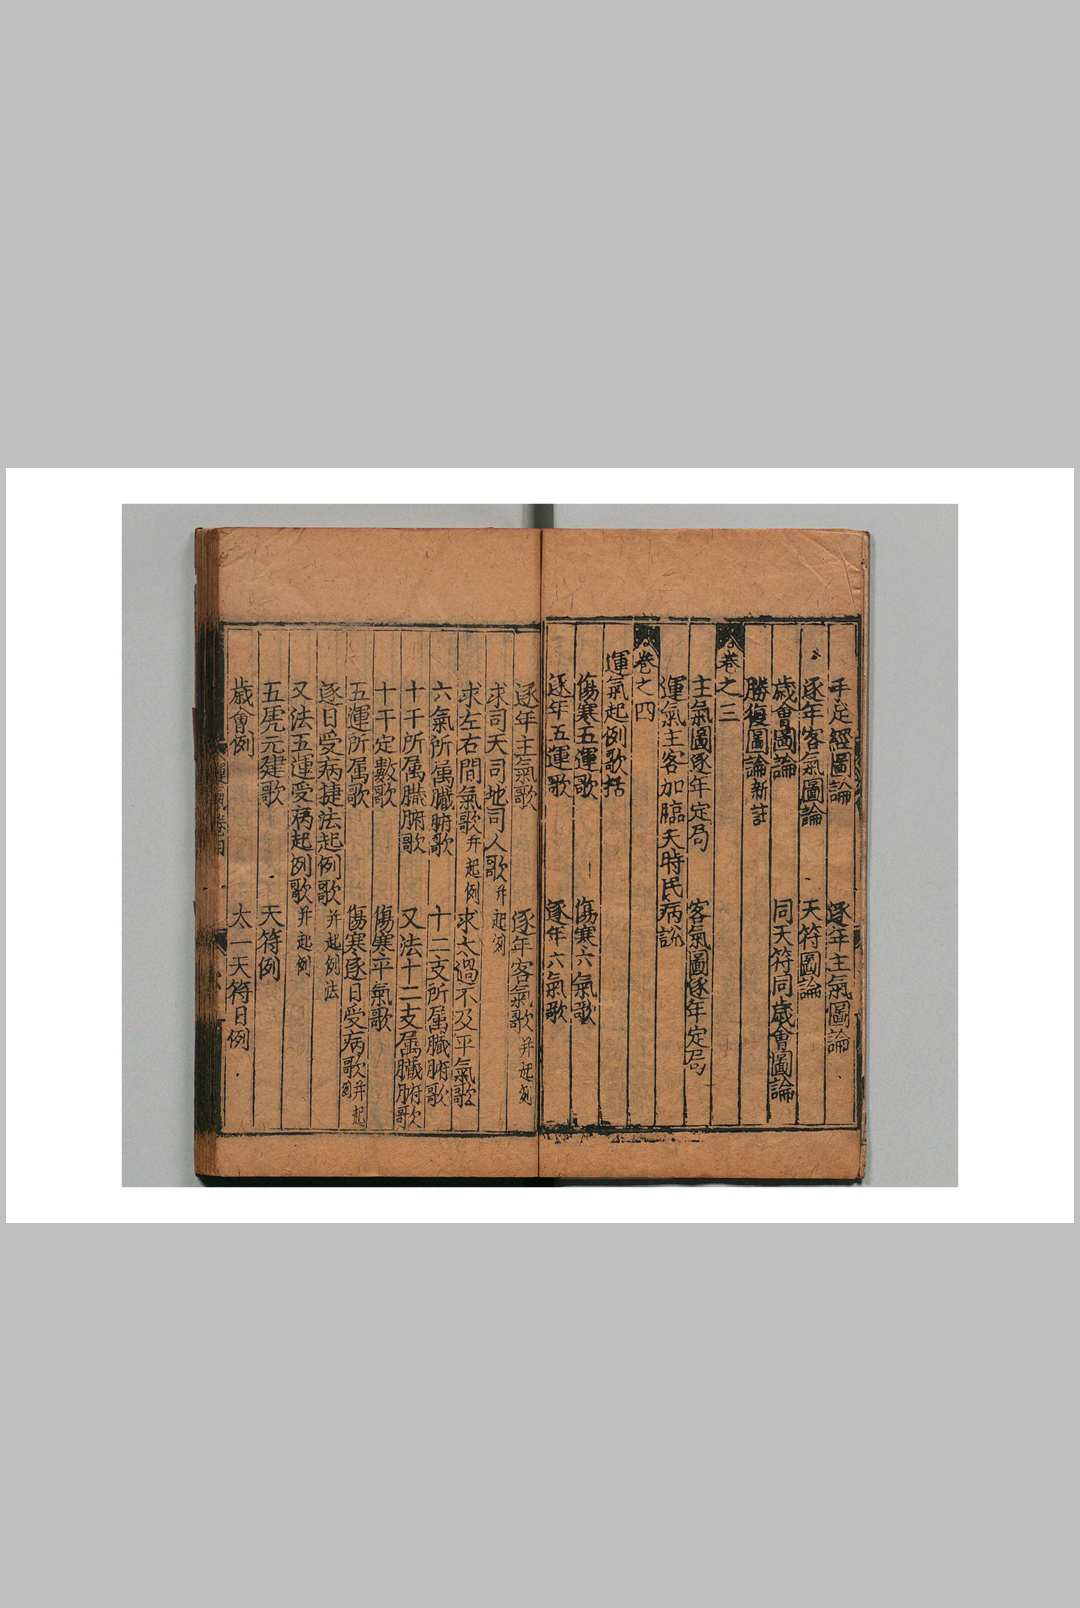 手足經圖論 逐年主氣圖論
逐年客氣圖論 天符圖論
歲會圖論 同天符同歲會圖論
勝復圖論新註
卷之三
主氣圖逐年定局 客氣圖逐年定局
運氣主客加臨天時民病說
卷之四
運氣起例歌括
傷寒五運歌 傷寒六氣歌
逐年五運歌 逐年六氣歌
逐年主氣歌 逐年客氣歌并起例
求司天司地司人歌并起例
求左右間氣歌并起例 求太過不及平氣歌
六氣所属臟腑歌 十二支所属臟腑歌
十干所属臟腑歌 又法十二支属臟腑歌
十干定數歌 傷寒平氣歌
五運所属歌 傷寒逐日受病歌并起例
逐日受病捷法起例歌并起例法
又法五運受病起例歌并起例
五虎元建歌 天符例
歲會例 太一天符日例